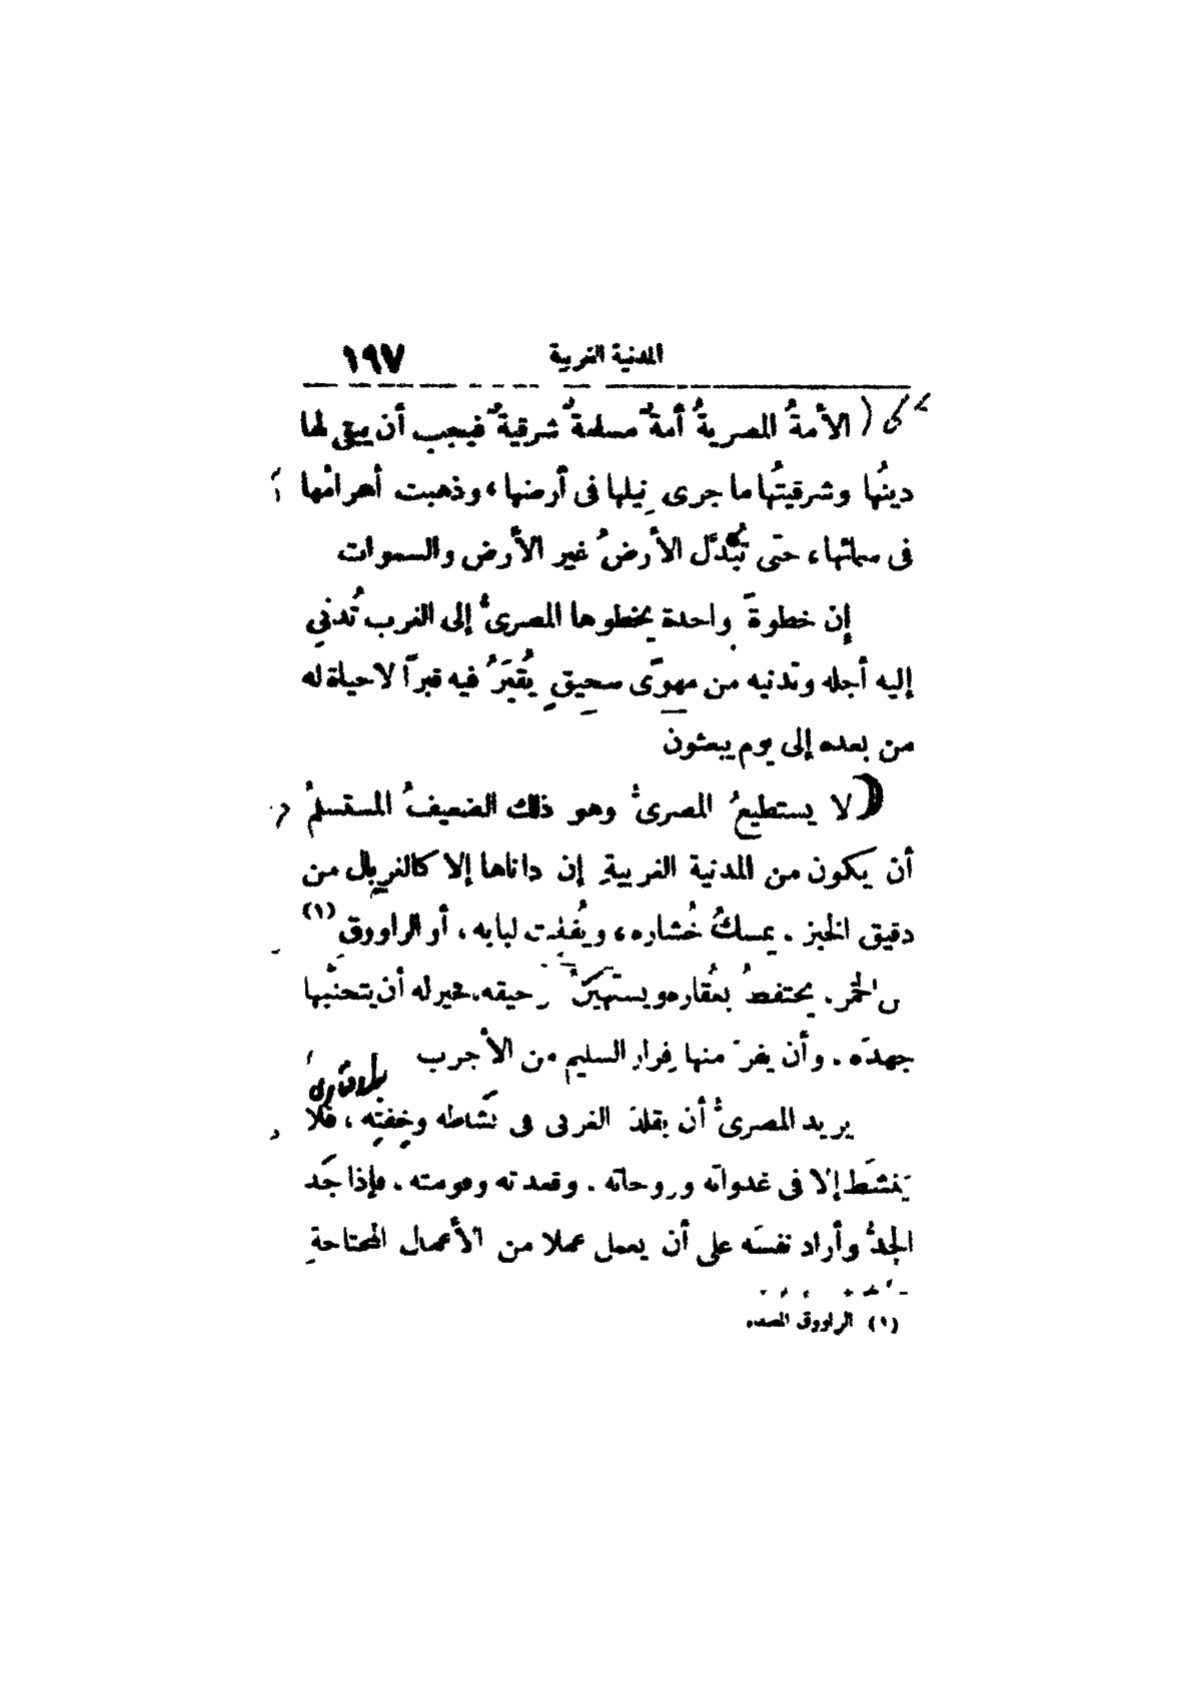 المدنية الغربية ١٩٧
الأمةُ المصريةُ أمةٌ مسلمةٌ شرقيةٌ فيجب أن يبقى لها
دينُها وشرقيتُها ما جرى نِيلها فى أرضها، وذهبت أهرامُها
فى سمائها، حتى تُبدَّل الأرضُ غير الأرض والسموات
إن خطوةً واحدة يخطوها المصرىُّ إلى الغرب تُدنى
إليه أجله وتدنيه من مهوًى سحيقٍ يُقبَرُ فيه قبراً لا حياة له
من بعده إلى يوم يبعثون
لا يستطيعُ المصرىُّ وهو ذلك الضعيفُ المستسلمُ
أن يكون من المدنية الغربيةِ إن داناها إلا كالغربال من
دقيق الخبز. يمسكُ خُشاره، ويُفلت لبابه، أو الراووقِ (١)
من الخمر. يحتفظُ بعُقاره ويستهينُ برحيقه، فخير له أن يتجنبها
جهدَه. وأن يفرَّ منها فِرار السليم من الأجرب
يريد المصرىُّ أن يقلدَ الغربى فى نَشاطه وخِفتِه، فلا
يَنشَط إلا فى غدواته وروحاته. وقعدته وقومته. فإذا جَد
الجدُّ وأراد نفسَه على أن يعمل عملا من الأعمال المحتاجةِ
(١) الراووق المصفاه